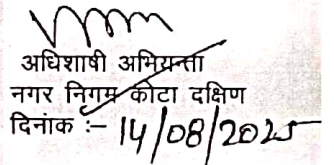 अधिशाषी अभियन्ता
नगर निगम कोटा दक्षिण
दिनांक :– 14/08/2025